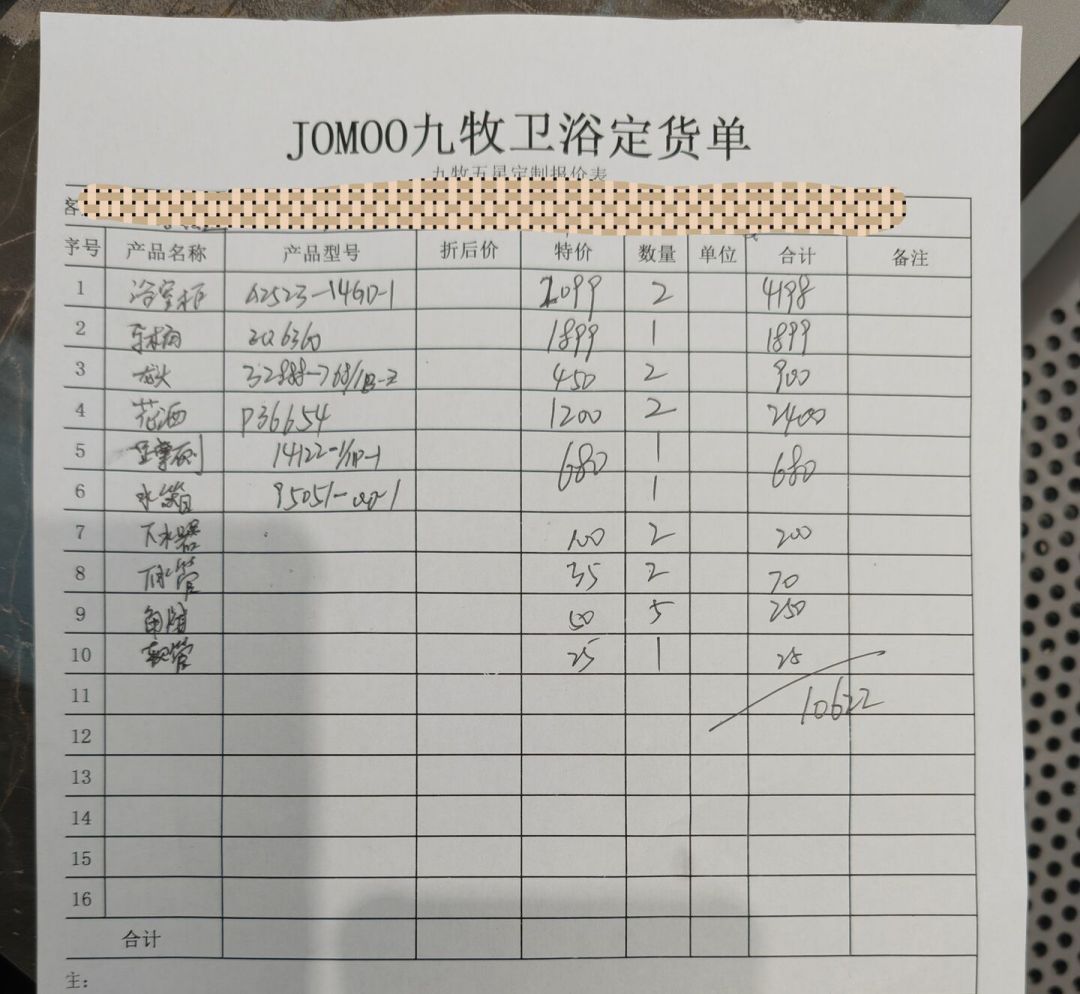 JOMOO九牧卫浴定货单
九牧五星定制报价表
客
序号 产品名称 产品型号 折后价 特价 数量 单位 合计 备注
1 浴室柜 A2523-14GD-1 2099 2 4198
2 1899 1 1899
3 龙头 450 2 900
4 花洒 P36654 1200 2 2400
5 14122-1/1P-1 680 1 680
6 水箱 1
7 下水器 100 2 200
8 下水管 35 2 70
9 角阀 50 5 250
10 软管 25 1 25
11 10622
12
13
14
15
16
合计
主: